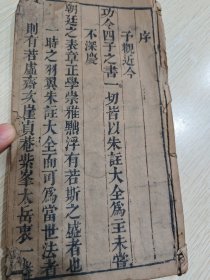 序
予觀近今
功令四子之書一切皆以朱註大全爲主未嘗
不深慶
朝廷之表章正學崇雅黜浮有若斯之盛者也
一時之羽翼朱註大全而可爲當世法者
則有若虛齋次崖貞菴紫峯太岳衷一